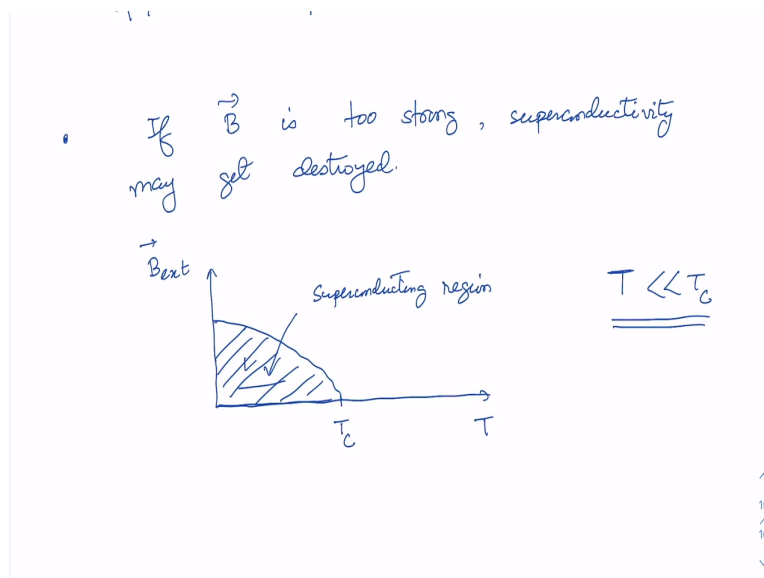 If B is too strong, superconductivity
may get destroyed.
Bext
Superconducting region
T << Tc
Tc
T